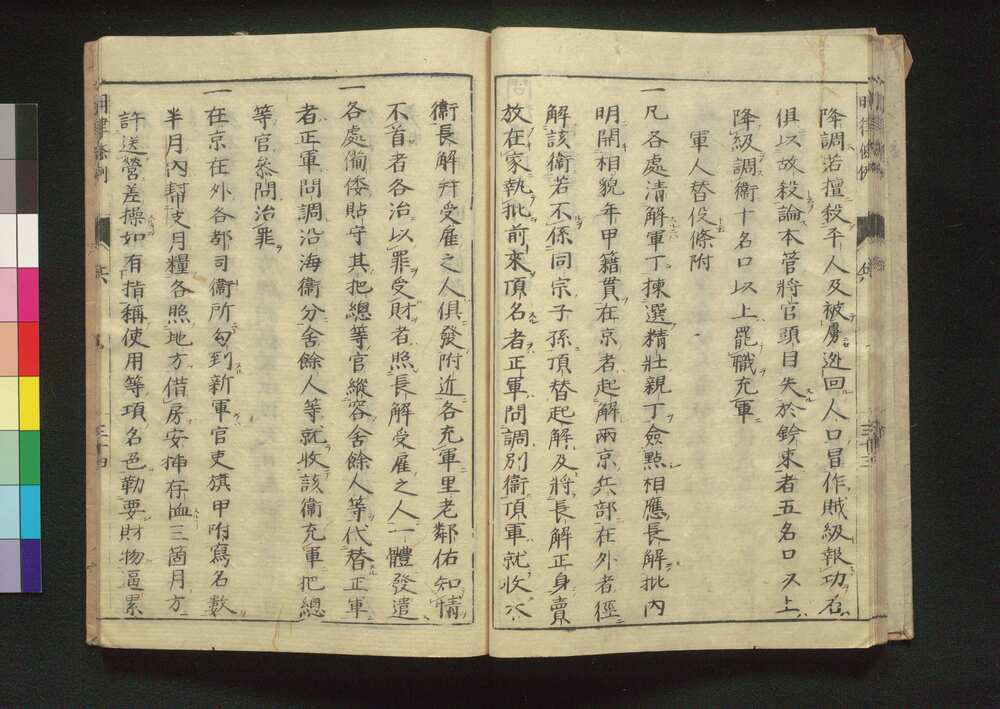 降調若擅殺平人及被虜逃回人口冒作賊級報功名
俱以故殺論本管將官頭目失於鈐束者五名口以上
降級調衞十名口以上罷職充軍
軍人替役條附
一凡各處清解軍丁揀選精壯親丁僉點相應長解批內
明開相貌年甲籍貫在京者起解兩京兵部在外者徑
解該衛若不係同宗子孫頂替起解及將長解正身賣
放在家執批前來頂名者正軍問調別衞頂軍就收本
衞長解幷受雇之人俱發附近各充軍里老鄰佑知情
不首者各治以罪受財者照長解受雇之人一體發遣
一各處備倭貼守其把總等官縱容舍餘人等代替正軍
者正軍問調沿海衞分舍餘人等就收該衞充軍把總
等官叅問治罪
一在京在外各都司衞所勾到新軍官吏旗甲附寫名數
半月內幫支月糧各照地方借房安揷存恤三箇月方
許送營差操如有指稱使用等項名色勒要財物逼累
明律條例
兵
三十四
明律條例
兵
三十三